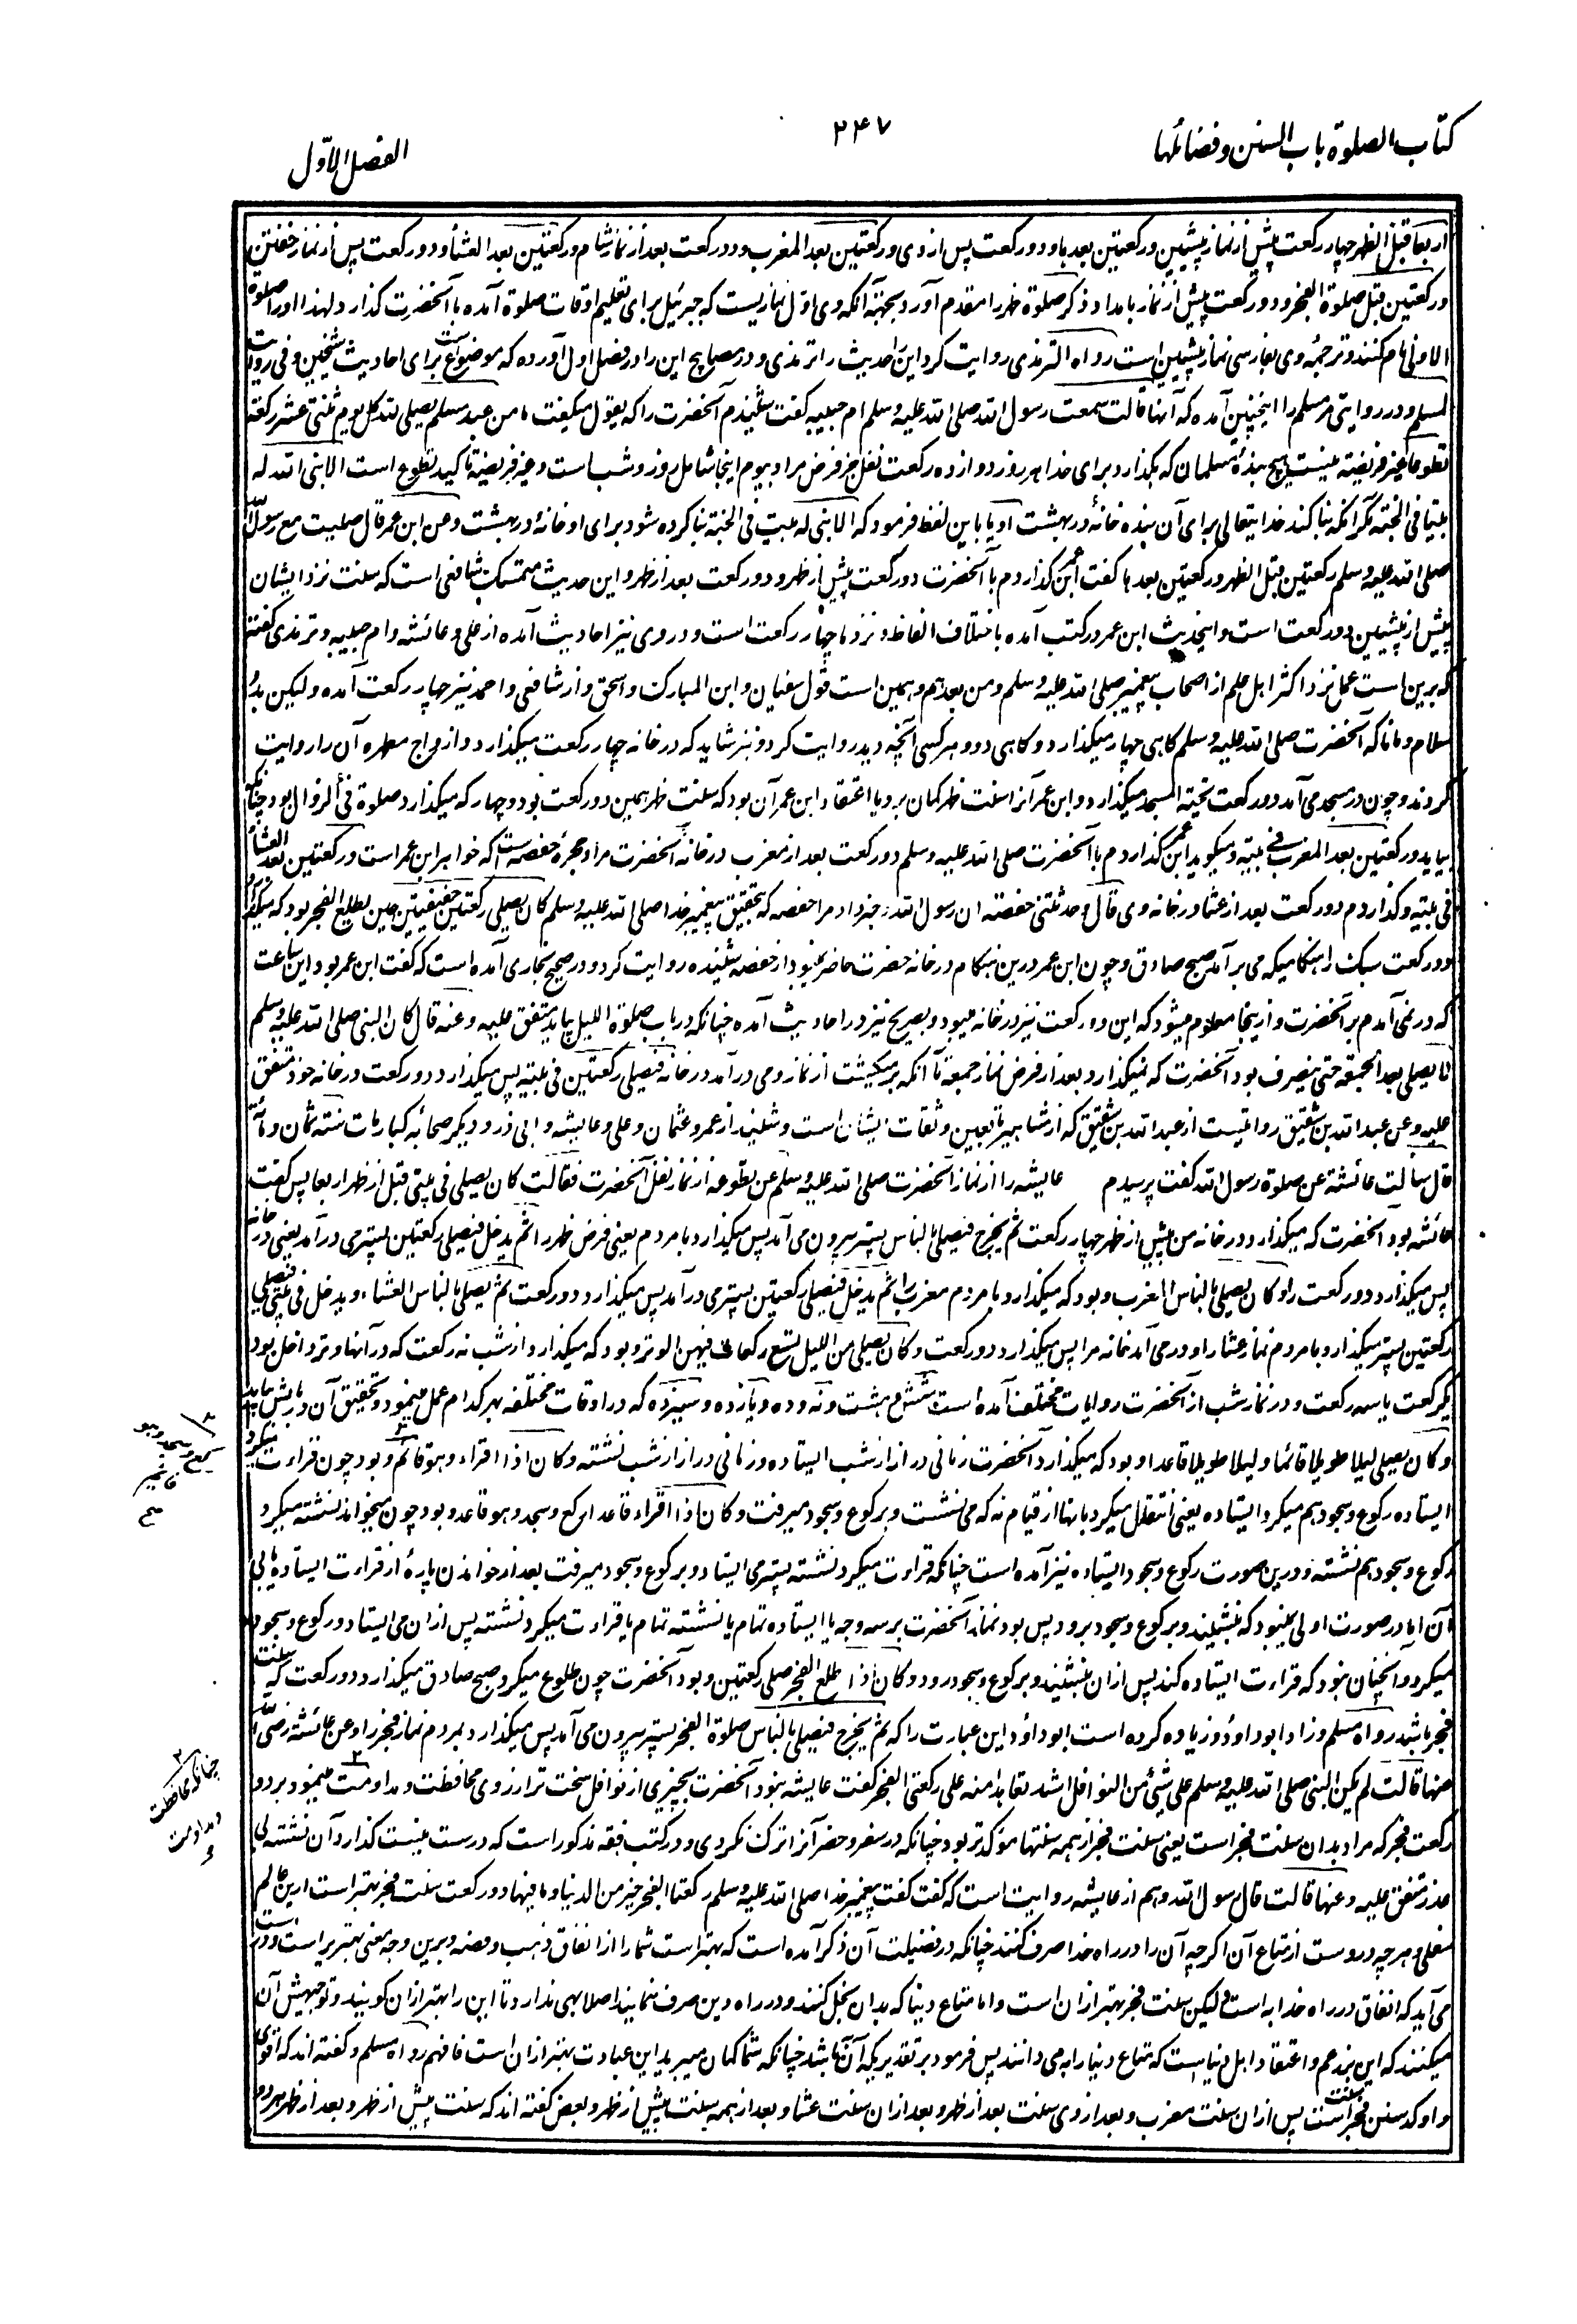 کتاب الصلوة باب السنن وفضائلها
۳۴۷
الفصل الاوّل
اربعا قبل الظهر چهار رکعت پیش از نماز پیشین ورکعتین بعدها ودو رکعت پس ازوی ورکعتین بعد المغرب ودو رکعت بعد از نماز شام ورکعتین بعد العشاء ودو رکعت پس از نماز خفتن
ورکعتین قبل صلوة الفجر ودو رکعت پیش از نماز بامداد وذکر صلوة ظهر را مقدم آورد بجهته آنکه وی اوّل نمازیست که جبرئیل برای تعلیم اوقات صلوة آمده با آنحضرت گذارد ولهذا اورا صلوة
الاولی نام کنند وترجمهٔ وی بفارسی نماز پیشین است رواه الترمذی روایت کرد این حدیث را ترمذی ودر مصابیح این را در فصل اول آورده که موضوع است برای احادیث شیخین وفی روایت
لمسلم ودر روایتی مر مسلم را اینچنین آمده که آنها قالت سمعت رسول الله صلی الله علیه وسلم ام حبیبه گفت شنیدم آنحضرت را که یقول میگفت ما من عبد مسلم یصلی لله کل یوم ثنتی عشر رکعة
تطوعا غیر فریضة نیست هیچ بندهٔ مسلمان که بگذارد برای خدا هر روز دوازده رکعت نفل جز فرض مراد بیوم اینجا شامل روز وشب است وغیر فریضة تاکید تطوع است الا بنی الله له
بیتا فی الجنة مگر آنکه بنا کند خدایتعالی برای آن بنده خانهٔ در بهشت او یا باین لفظ فرمود که الا بنی له بیت فی الجنة بنا کرده شود برای او خانهٔ در بهشت وعن ابن عمر قال صلیت مع رسول الله
صلی الله علیه وسلم رکعتین قبل الظهر ورکعتین بعدها گفت ابن عمر گذاردم با آنحضرت دو رکعت پیش از ظهر ودو رکعت بعد از ظهر واین حدیث متمسک شافعی است که سنت نزد ایشان
پیش از پیشین دو رکعت است واینحدیث ابن عمر در کتب آمده باختلاف الفاظ ونزد ما چهار رکعت است ودر وی نیز احادیث آمده از علی وعائشه وام حبیبه وترمذی گفته
که برین است عمل نزد اکثر اهل علم از اصحاب پیغمبر صلی الله علیه وسلم ومن بعدهم وهمین است قول سفیان وابن المبارک واسحق واز شافعی واحمد نیز چهار رکعت آمده ولیکن بدو
سلام ومانا که آنحضرت صلی الله علیه وسلم گاهی چهار میگذارد وگاهی دو وهر کسی آنچه دید روایت کرد ونیز شاید که در خانه چهار رکعت میگذارد وازواج مطهره آن را روایت
کردند وچون در مسجد می آمد دو رکعت تحیته المسجد میگذارد وابن عمر آنرا سنت ظهر گمان برد ویا اعتقاد ابن عمر آن بود که سنت ظهر همین دو رکعت بود وچهار که میگذارد صلوة فی الزوال بود چنانکه
بیاید ورکعتین بعد المغرب فی بیته ومیگوید ابن عمر گذاردم با آنحضرت صلی الله علیه وسلم دو رکعت بعد از مغرب در خانهٔ آنحضرت مراد حجرهٔ حفصه است که خواهر ابن عمر است ورکعتین بعد العشاء
فی بیته وگذاردم دو رکعت بعد از عشا در خانه وی قال وحدثتنی حفصة ان رسول الله خبر داد مرا حفصه که بتحقیق پیغمبر خدا صلی الله علیه وسلم کان یصلی رکعتین خفیفتین حین یطلع الفجر بود که میگذارد
دو رکعت سبک را هنگامیکه می برآمد صبح صادق وچون ابن عمر درین هنگام در خانه حضرت حاضر نبود از حفصه شنیده روایت کرد ودر صحیح بخاری آمده است که گفت ابن عمر بود این ساعت
که در نمی آمدم بر آنحضرت وازینجا معلوم میشود که این دو رکعت نیز در خانه میبود وبصریح نیز در احادیث آمده چنانکه در باب صلوة اللیل بیاید متفق علیه وعنه قال کان النبی صلی الله علیه وسلم
لا یصلی بعد الجمعة حتی ینصرف بود آنحضرت که نمیگذارد بعد از فرض نماز جمعه تا آنکه بر میگشت از نماز ومی درآمد در خانه فیصلی رکعتین فی بیته پس میگذارد دو رکعت در خانه خود متفق
علیه وعن عبد الله بن شقیق روایتست از عبد الله بن شقیق که از مشاهیر تابعین وثقات ایشان است وشنید از عمر وعثمان وعلی وعایشه وابی ذر ودیگر صحابهٔ کبار مات سنته ثمان ومأئة
قال سالت عائشة عن صلوة رسول الله گفت پرسیدم عایشه را از نماز آنحضرت صلی الله علیه وسلم عن تطوعه از نماز نفل آنحضرت فقالت کان یصلی فی بیتی قبل الظهر اربعا پس گفت
عائشه بود آنحضرت که میگذارد در خانه من پیش از ظهر چهار رکعت ثم یخرج فیصلی بالناس پستر بیرون می آمد پس میگذارد با مردم یعنی فرض ظهر را ثم یدخل فیصلی رکعتین پستر می درآمد یعنی در خانه
پس میگذارد دو رکعت را وکان یصلی بالناس المغرب وبود که میگذارد با مردم مغرب را ثم یدخل فیصلی رکعتین پستر می درآمد پس میگذارد دو رکعت ثم یصلی بالناس العشاء ویدخل فی بیتی فیصلی
رکعتین پستر میگذارد با مردم نماز عشا را ودر می آمد خانه مرا پس میگذارد دو رکعت وکان یصلی من اللیل تسع رکعات فیهن الوتر وبود که میگذارد از شب نه رکعت که در آنها وتر داخل بود
یک رکعت یا سه رکعت ودر نماز شب از آنحضرت روایات مختلف آمده است شش وهشت ونه وده ویازده وسیزده که در اوقات مختلفه بهر کدام عمل مینمود وتحقیق آن در بابش بیاید
وکان یصلی لیلا طویلا قائما ولیلا طویلا قاعدا وبود که میگذارد آنحضرت زمانی دراز از شب ایستاده وزمانی دراز از شب نشسته وکان اذا اقراء وهو قائم وبود چون قراءت میکرد
ایستاده رکوع وسجود هم میکرد ایستاده یعنی انتقال میکرد بانها از قیام نه که می نشست وبرکوع وسجود میرفت وکان اذا اقراء قاعدا رکع وسجد وهو قاعد وبود چون میخواند نشسته میکرد
رکوع وسجود هم نشسته ودرین صورت رکوع وسجود ایستاده نیز آمده است چنانکه قراءت میکرد نشسته پستر می ایستاد وبرکوع وسجود میرفت بعد از خواندن پارهٔ از قراءت ایستاده یا بی
آن اما در صورت اولی نبود که بنشیند وبرکوع وسجود برود پس بود نماز آنحضرت بر سه وجه یا ایستاده تمام یا نشسته تمام یا قراءت میکرد نشسته پس ازان می ایستاد ورکوع وسجود
میکرد وآنچنان نبود که قراءت ایستاده کند پس ازان بنشیند وبرکوع وسجود رود وکان اذا طلع الفجر صلی رکعتین وبود آنحضرت چون طلوع میکرد صبح صادق میگذارد دو رکعت که سنت
فجر باشد رواه مسلم وزاد ابو داؤد وزیاده کرده است ابو داؤد این عبارت را که ثم یخرج فیصلی بالناس صلوة الفجر پستر بیرون می آمد پس میگذارد بمردم نماز فجر را وعن عائشة رضی الله
عنها قالت لم یکن النبی صلی الله علیه وسلم علی شیئ من النوافل اشد تعاهدا منه علی رکعتی الفجر گفت عایشه نبود آنحضرت بچیزی از نوافل سخت تر از روی محافظت ومداومت مینمود بر دو
رکعت فجر که مراد بدان سنت فجر است یعنی سنت فجر از همه سنتها مؤکد تر بود چنانکه در سفر وحضر آنرا ترک نکردی ودر کتب فقه مذکور است که درست نیست گذاردن آن نشسته بی
عذر متفق علیه وعنها قالت قال رسول الله وهم از عایشه روایت است که گفت گفت پیغمبر خدا صلی الله علیه وسلم رکعتا الفجر خیر من الدنیا وما فیها دو رکعت سنت فجر بهتر است ازین عالم
سفلی وهر چه دروست از متاع آن اگر چه آن را در راه خدا صرف کنند چنانکه در فضیلت آن ذکر آمده است که بهتر است شما را از انفاق ذهب وفضه وبرین وجه معنی بهتر براست ودر است
می آید که انفاق در راه خدا به است ولیکن سنت فجر بهتر ازان است واما متاع دنیا که بدان بخل کنند ودر راه دین صرف ننمایند اصلا بهی ندارد تا این را بهتر ازان گویند وتوجیهش آن
میکنند که این بزعم واعتقاد اهل دنیاست که متاع دنیا را به می دانند پس فرمود بر تقدیریکه آن به باشد چنانکه شما گمان میبرید این عبادت بهتر ازان است فافهم رواه مسلم وگفته اند که اقوی
واوکد سنن سنت فجر است پس ازان سنت مغرب وبعد ازوی سنت بعد از ظهر وبعد ازان سنت عشا وبعد از همه سنت پیش از ظهر وبعض گفته اند که سنت پیش از ظهر وبعد از ظهر هر دو
چنانکه محافظت
ومداومت